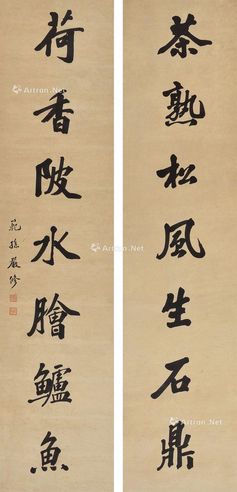 茶熟松風生石鼎
荷香陂水膾鱸魚
範孫嚴修
Artron.Net
Artron.Net
Artron.Net
Artron.Net